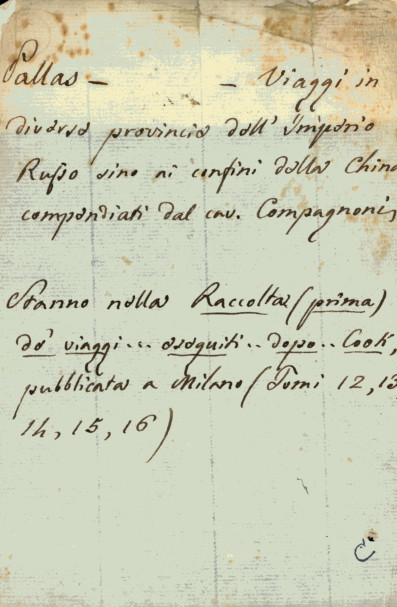 Pallas — — Viaggi in
diverse provincie dell' Imperio
Russo sino ai confini della China
compendiati dal cav. Compagnoni,
Stanno nella Raccolta (prima)
de' viaggi... eseguiti.. dopo.. Cook,
pubblicata a Milano (Tomi 12, 13
14, 15, 16)